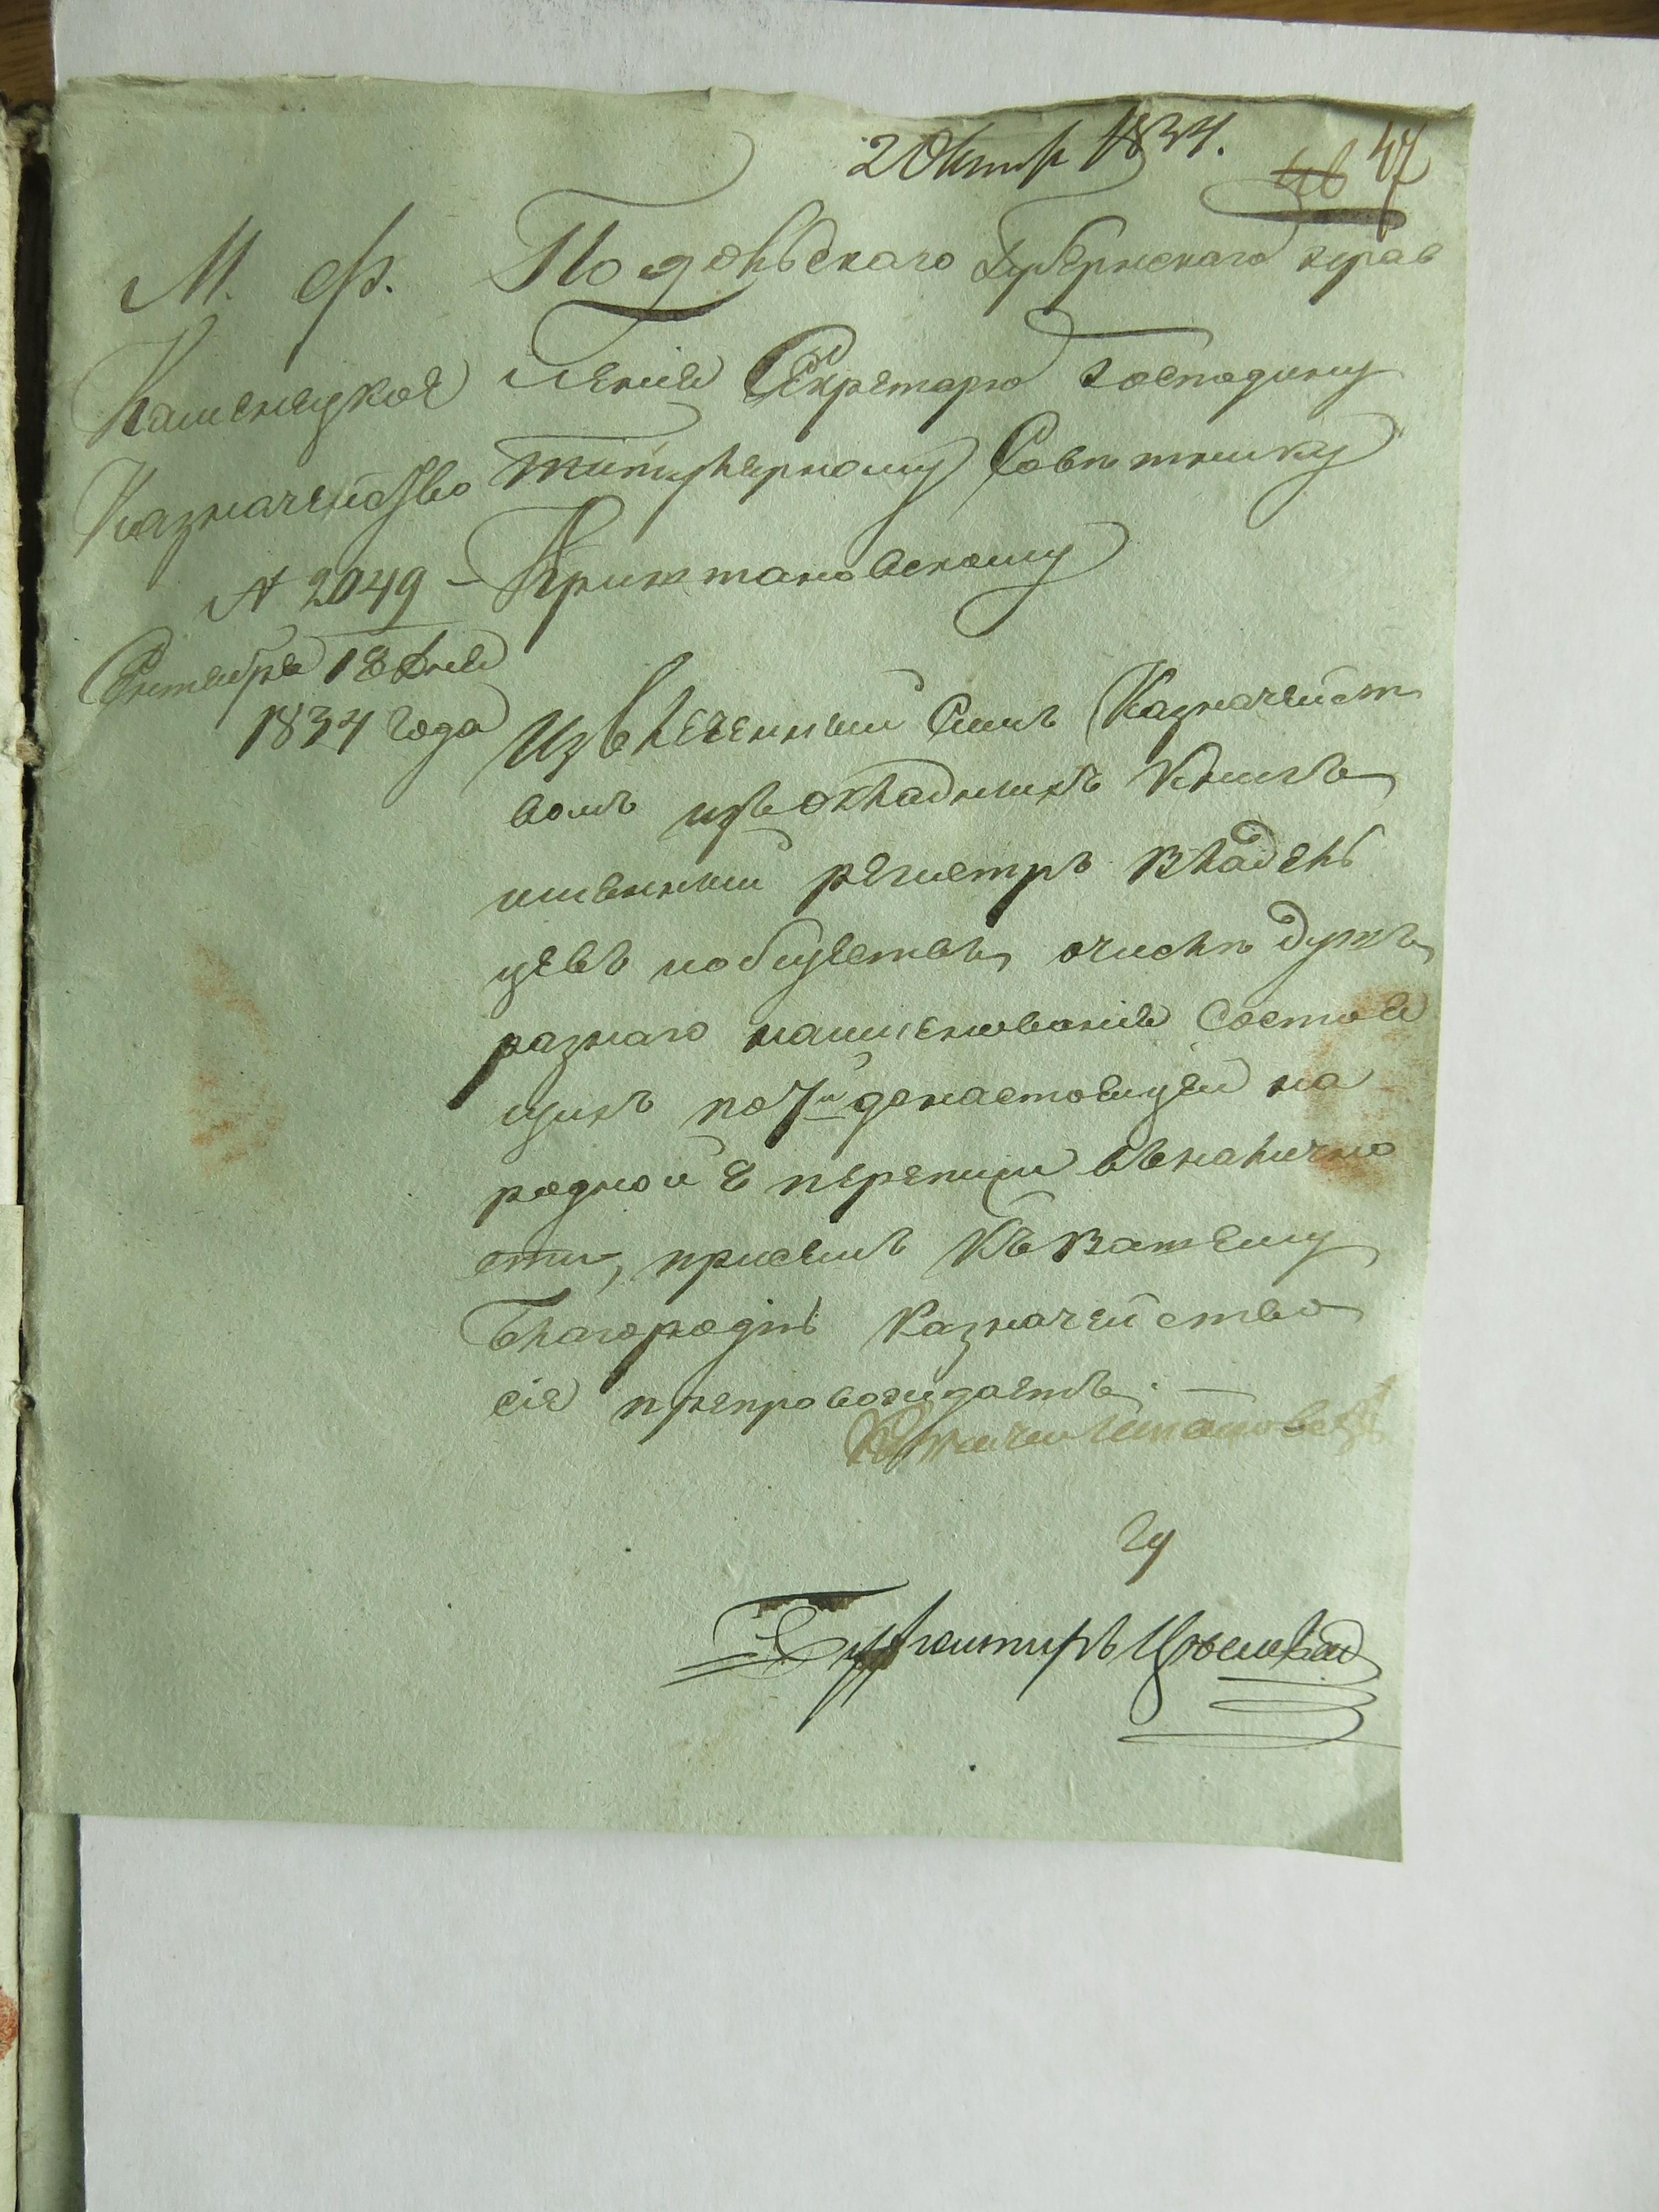 2 Октр 1834.
46 47
М. Ф.
Каменецкое
Казначейство
№ 2049
Сентября 18 дня
1834 года
Подольскаго Губернскаго прав
ленія Секретарю Господину
Титулярному Советнику
Криштановскому
Извлеченный Симъ Казначейст
вомъ изъ окладныхъ Книгъ
имянный регистръ владель
цевъ
разнаго наименованія Состоя
щихъ по 7й
родной 8 переписи въ налично
сти, при семъ Къ Вашему
Благородію Казначейство
сіе препровождаетъ. —
Бухгалтиръ